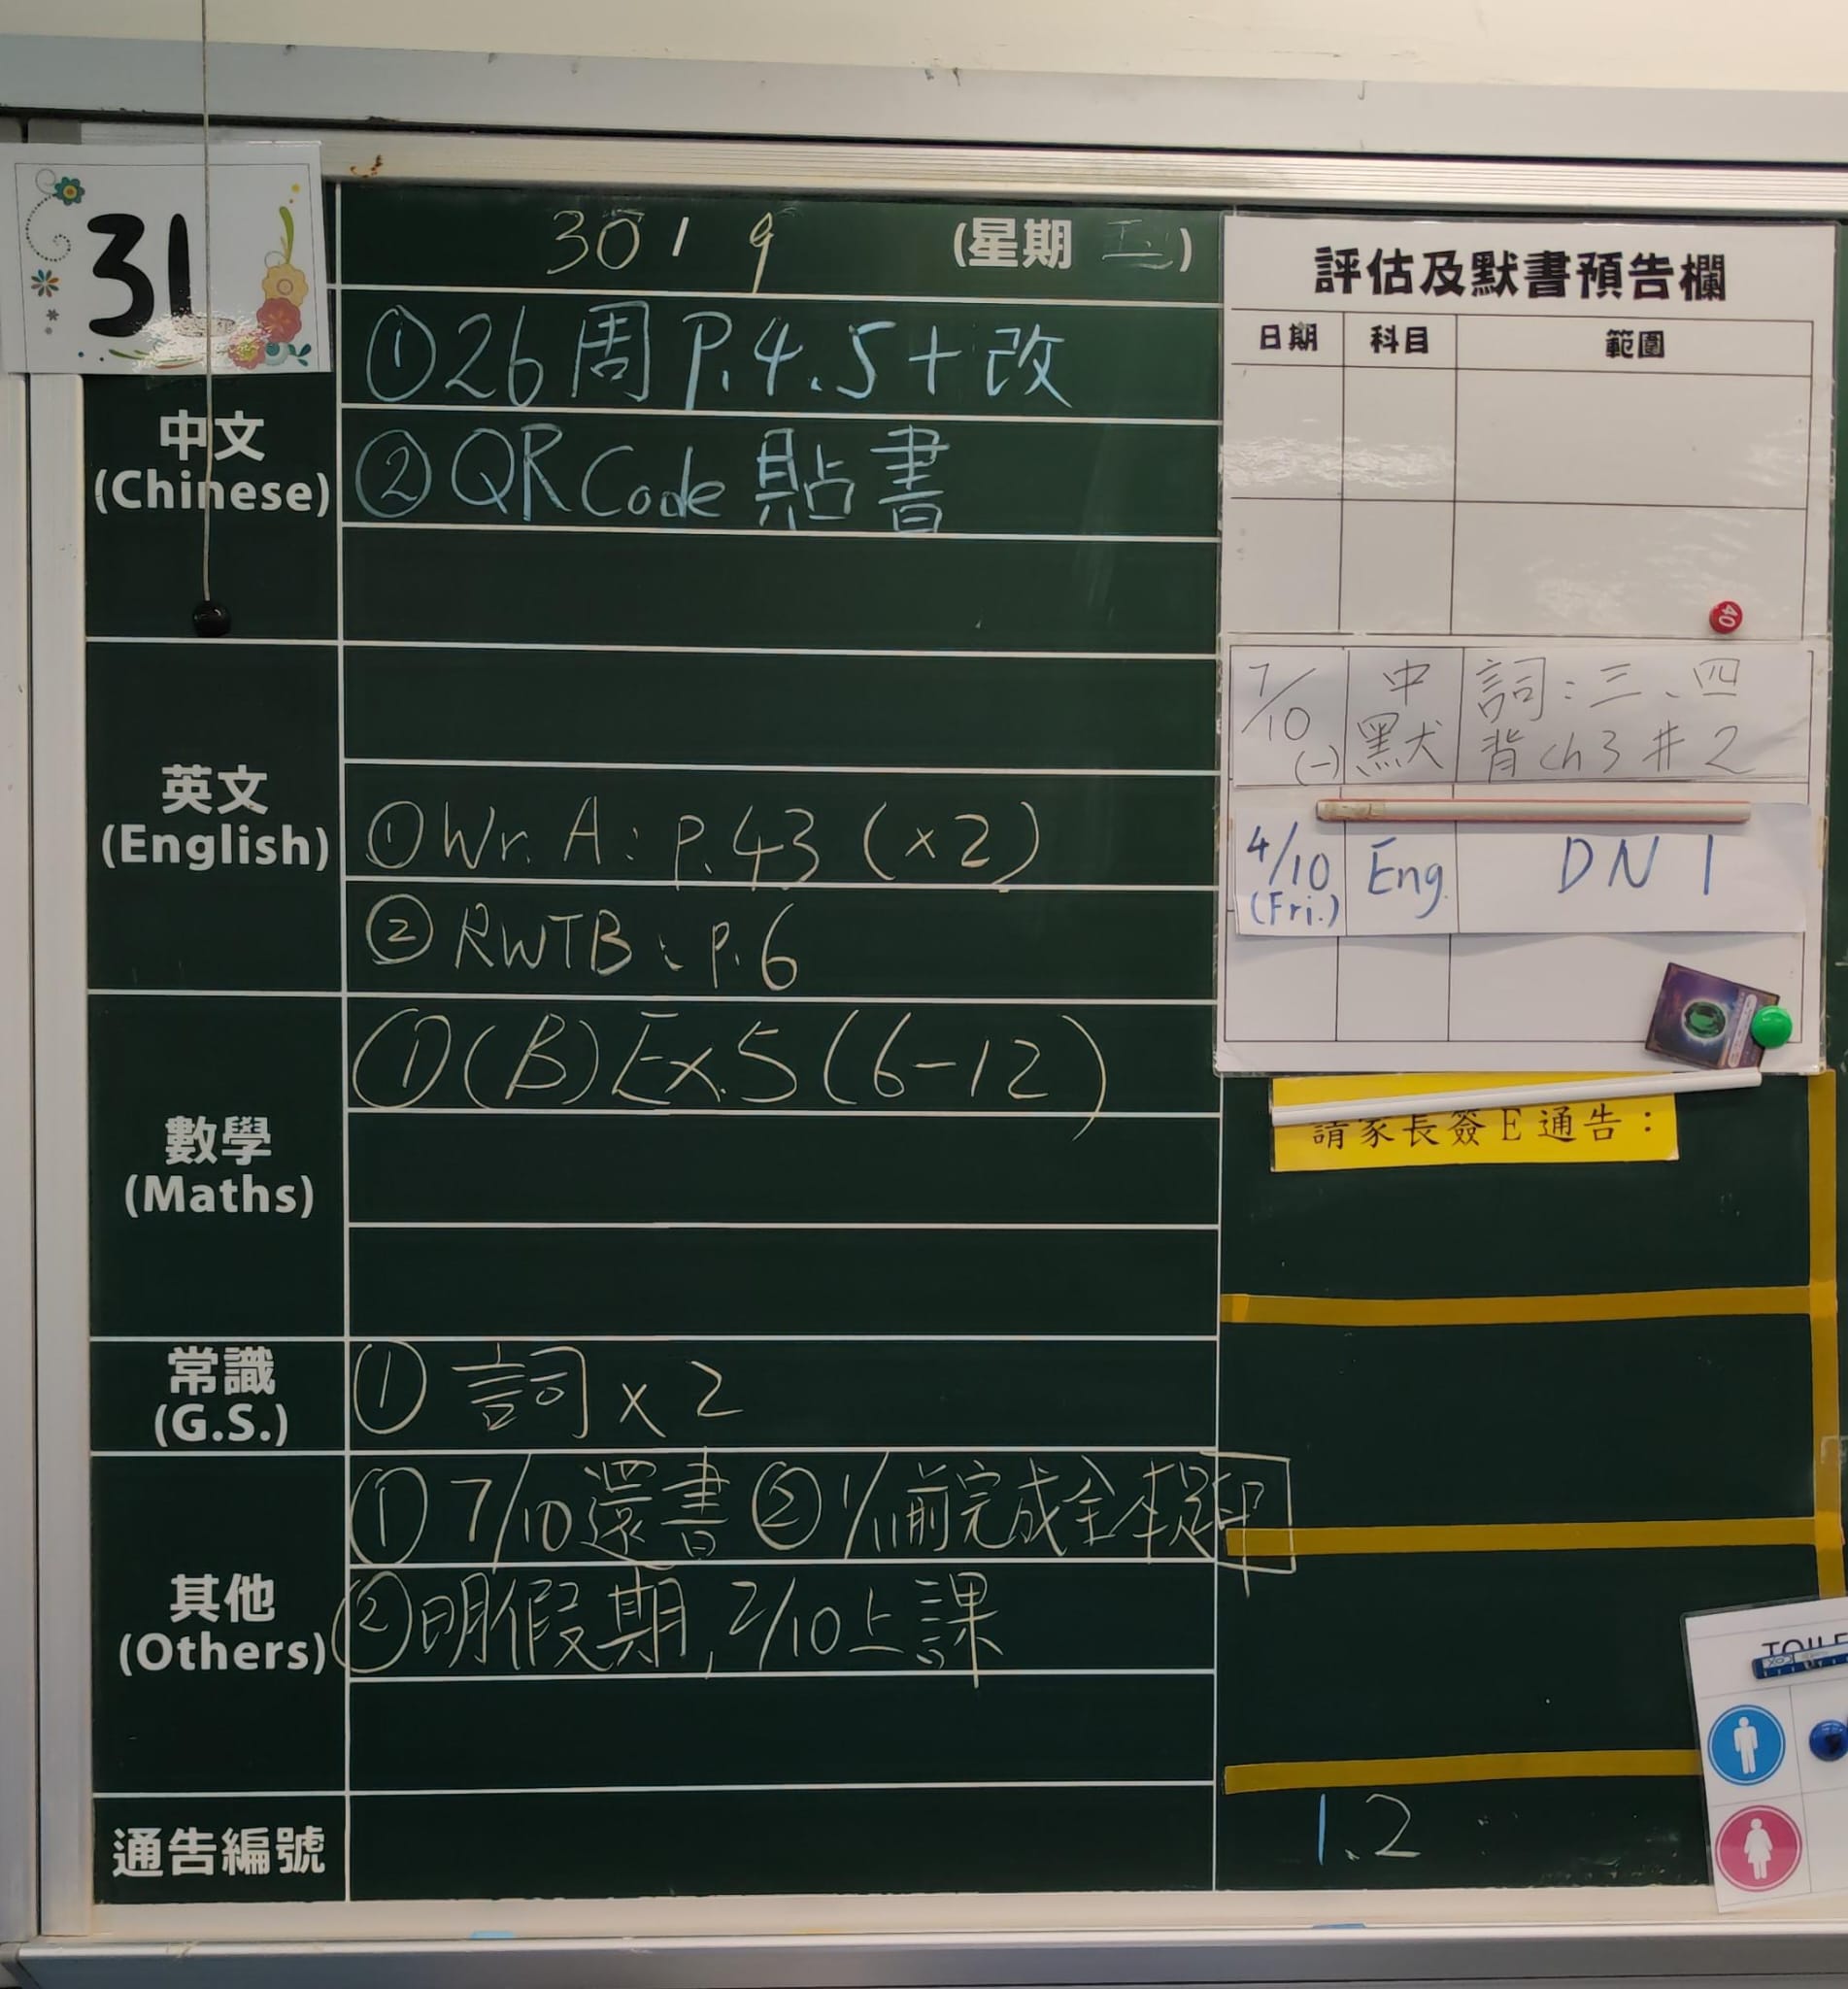 31
30 / 9 (星期 )
中文
(Chinese)
①26周 P.4.5+改
②QR Code 貼書
英文
(English)
①Wr. A: p.43 (×2)
②RWTB: p.6
數學
(Maths)
①(B)Ex.5(6-12)
常識
(G.S.)
① 詞×2
其他
(Others)
① 7/10還書 ② 1/11前完成全本
②明假期, 2/10上課
通告編號
評估及默書預告欄
日期 科目 範圍
40
7/10 (一) 中默 詞:三、四
背ch3 #2
4/10 (Fri.) Eng. DN 1
請家長簽E通告:
1.2